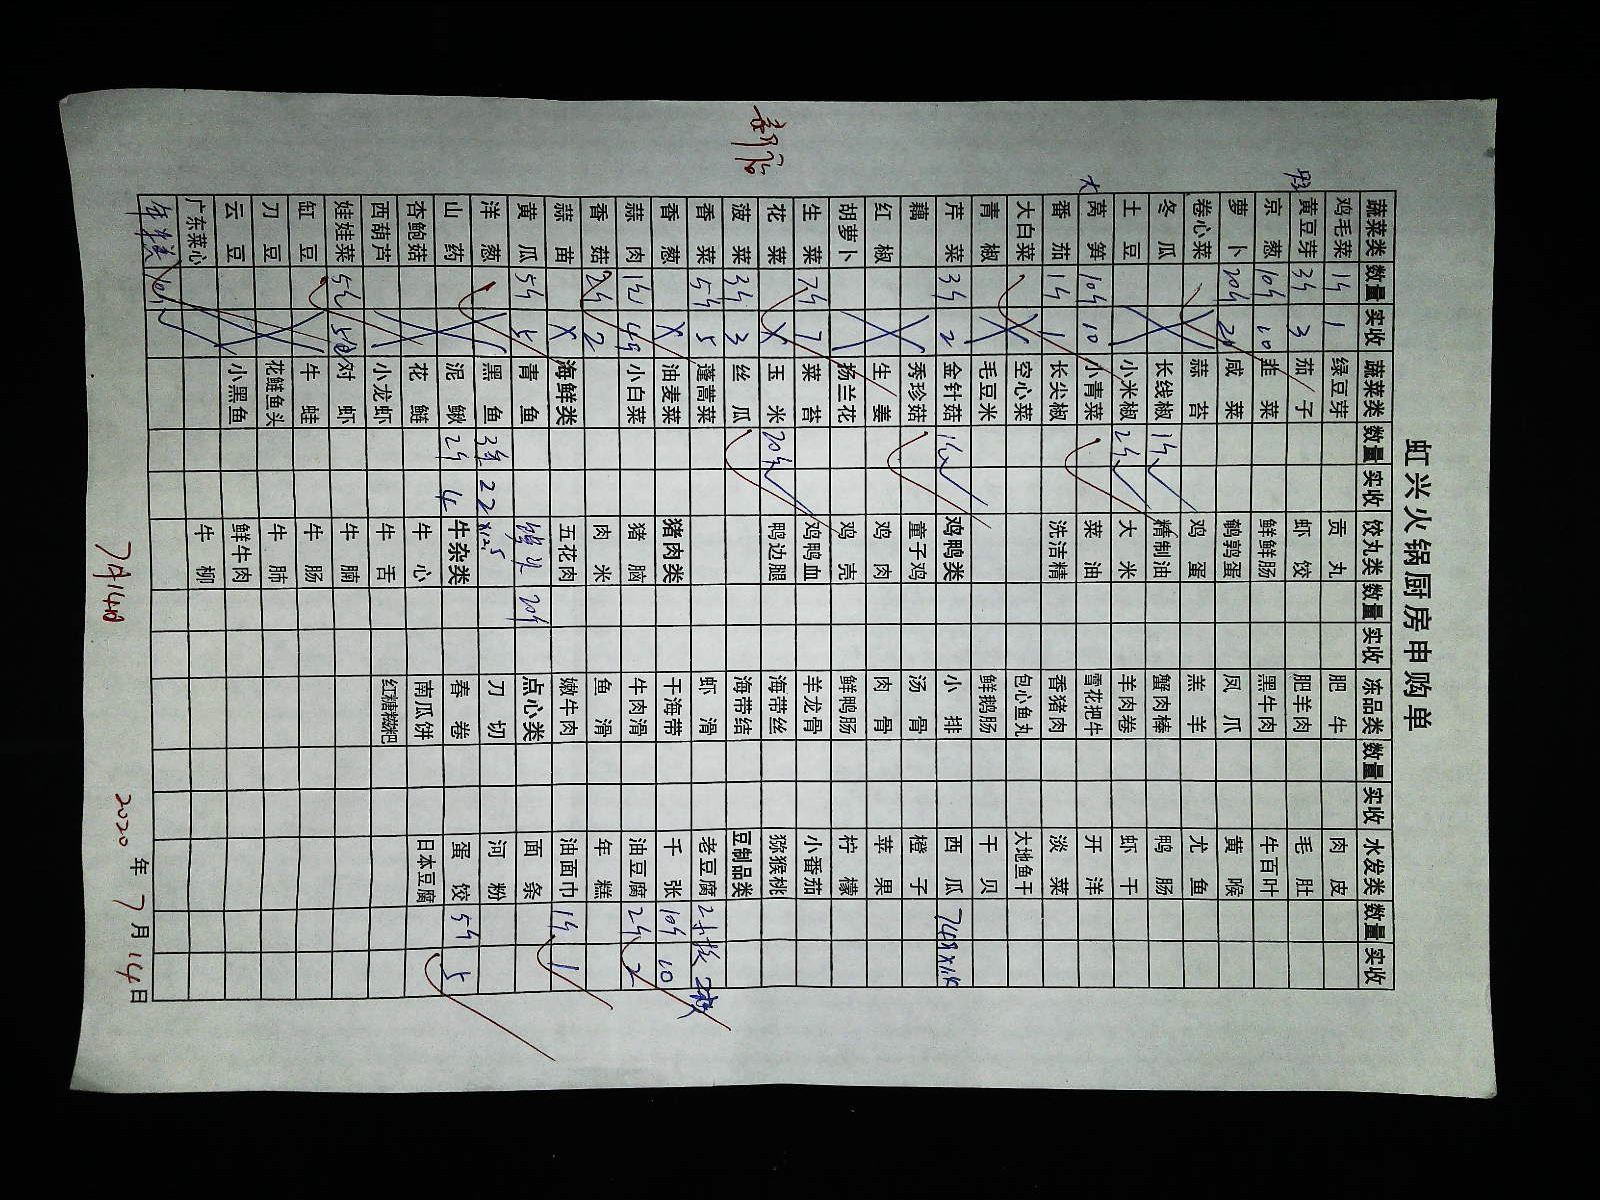 虹兴火锅厨房申购单
蔬菜类 数量 实收 蔬菜类 数量 实收 饺丸类 数量 实收 冻品类 数量 实收 水发类 数量 实收
鸡毛菜 1斤 1 绿豆芽 贡丸 肥牛 肉皮
黄豆芽 3斤 3 茄子 虾饺 肥羊肉 毛肚
京葱 10斤 10 韭菜 鲜鲜肠 黑牛肉 牛百叶
萝卜 20斤 20 咸菜 鹌鹑蛋 凤爪 黄喉
卷心菜 蒜苔 鸡蛋 羔羊 尤鱼
冬瓜 长线椒 1斤 精制油 蟹肉棒 鸭肠
土豆 小米椒 2斤 大米 羊肉卷 虾干
大 莴笋 10斤 10 小青菜 菜油 雪花把牛 开洋
番茄 1斤 1 长尖椒 洗洁精 香猪肉 淡菜
大白菜 空心菜 包心鱼丸 大地鱼干
青椒 毛豆米 鲜鹅肠 干贝
芹菜 3斤 2 金针菇 1斤 鸡鸭类 小排 西瓜
藕 秀珍菇 童子鸡 汤骨 橙子
红椒 生姜 鸡肉 肉骨 苹果
胡萝卜 扬兰花 鸡壳 鲜鸭肠 柠檬
生菜 7斤 7 菜苔 鸡鸭血 羊龙骨 小番茄
花菜 X 玉米 20斤 鸭边腿 海带丝 猕猴桃
菠菜 3斤 3 丝瓜 海带结 豆制品类
香菜 5斤 5 蓬蒿菜 虾滑 老豆腐
香葱 X 油麦菜 猪肉类 干海带 千张 10斤 10
蒜肉 小白菜 猪脑 牛肉滑 油豆腐 2斤 2
香菇 2斤 2 肉米 鱼滑 年糕
蒜苗 X 海鲜类 五花肉 嫩牛肉 油面巾 1斤 1
黄瓜 5斤 5 青鱼 20斤 点心类 面条
洋葱 黑鱼 22 刀切 河粉
山药 泥鳅 2斤 4 牛杂类 春卷 蛋饺 5斤 5
杏鲍菇 花鲢 牛心 南瓜饼 日本豆腐
西葫芦 小龙虾 牛舌 红糖糍粑
娃娃菜 5斤 5 对虾 牛腩
缸豆 牛蛙 牛肠
刀豆 花鲢鱼头 牛肺
云豆 小黑鱼 鲜牛肉
广东菜心 牛柳
7月14日
2020年7月14日